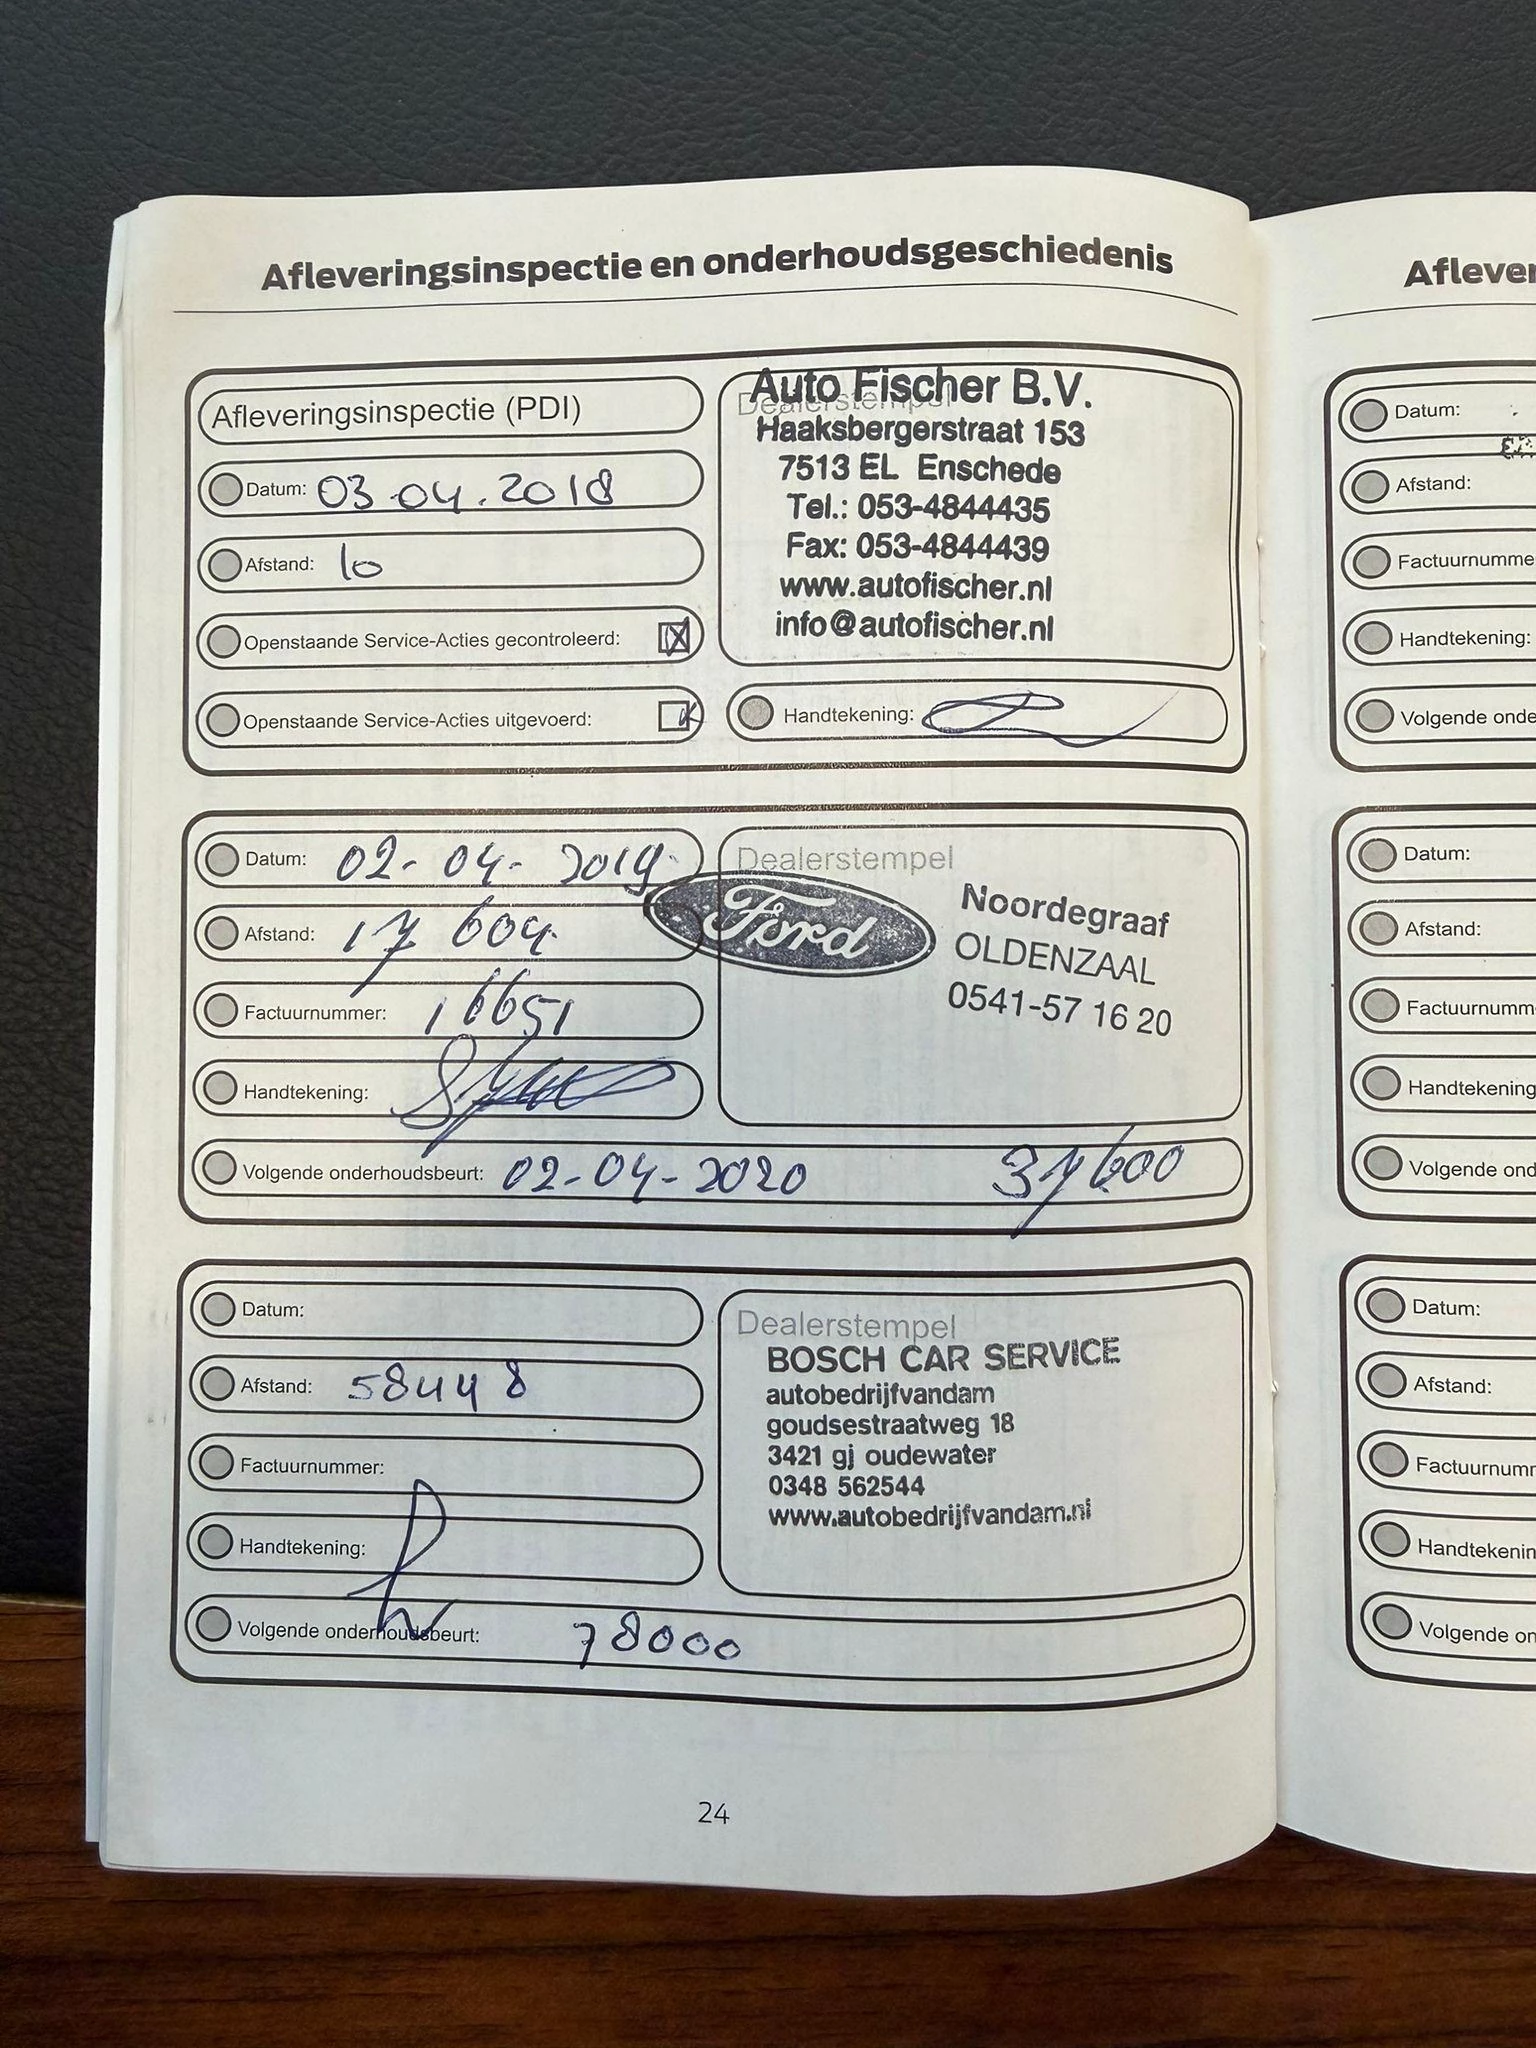 Afleveringsinspectie en onderhoudsgeschiedenis
Afleveringsinspectie (PDI)
Datum: 03.04.2018
Afstand: 10
Openstaande Service-Acties gecontroleerd:
Openstaande Service-Acties uitgevoerd:
Dealerstempel
Auto Fischer B.V.
Haaksbergerstraat 153
7513 EL Enschede
Tel.: 053-4844435
Fax: 053-4844439
www.autofischer.nl
info@autofischer.nl
Handtekening:
Datum: 02-04-2019
Afstand: 17 604
Factuurnummer: 16651
Handtekening:
Dealerstempel
Ford
Noordegraaf
OLDENZAAL
0541-57 16 20
Volgende onderhoudsbeurt: 02-04-2020 37600
Datum:
Afstand: 58448
Factuurnummer:
Handtekening:
Dealerstempel
BOSCH CAR SERVICE
autobedrijfvandam
goudsestraatweg 18
3421 gj oudewater
0348 562544
www.autobedrijfvandam.nl
Volgende onderhoudsbeurt: 78000
24
Aflever
Datum:
Afstand:
Factuurnumme
Handtekening:
Volgende onde
Datum:
Afstand:
Factuurnumm
Handtekening
Volgende ond
Datum:
Afstand:
Factuurnumr
Handtekenin
Volgende on